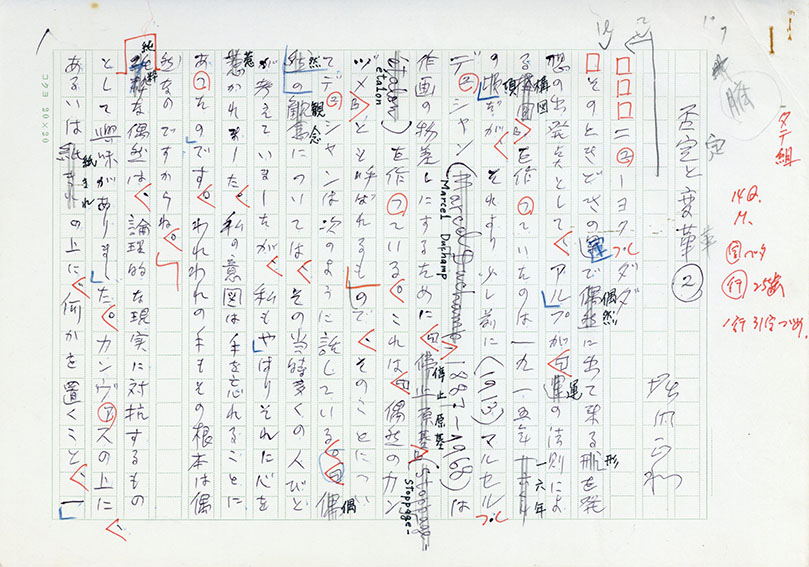 タテ組
14Q
M、
字ベタ
行25歯
1行31字づめ
否定と変革 ②
□□□ニューヨクダダ
□そのときどきの運で偶然に出て来る形を発
想の出発点として、アルプが「運の法則によ
る構図」を作っていたのは一九一五年一六年
の頃だが、それより少し前に(1913)マルセル・
デュシャン(Marcel Duchamp 1887-1968)は
作画の物差しにするために「停止原基」(Stoppage-
étalon)を作っている。これは「偶然のカン
ヅメ」とも呼ばれるもので、そのことについ
てデュシャンは次のように話している。「偶
然の観念については、その当時多くの人びと
が考えていましたが、私もやはりそれに心を
惹かれました。私の意図は手を忘れることに
あったのです。われわれの手もその根本は偶
然なのですからね。
純粋な偶然は、論理的な現実に対抗するもの
として興味がありました。カンヴァスの上に、
あるいは紙きれの上に、何かを置くこと、
コクヨ 20×20